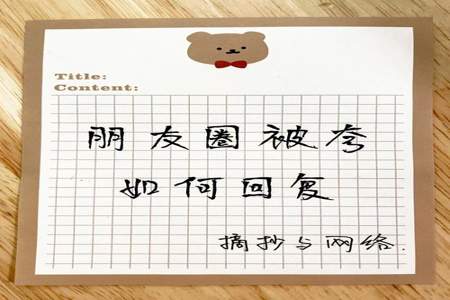 Title:
Content:
朋友圈被夸
如何回复
摘抄与网络.